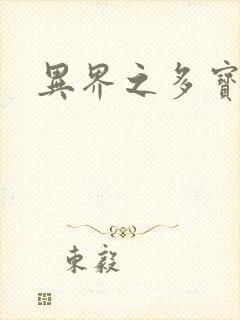 異界之多寶
東毅